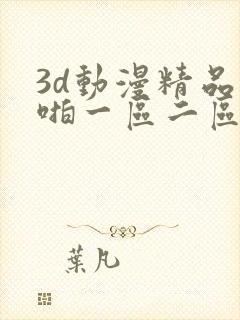 3d動漫精品
啪一區二區
葉凡